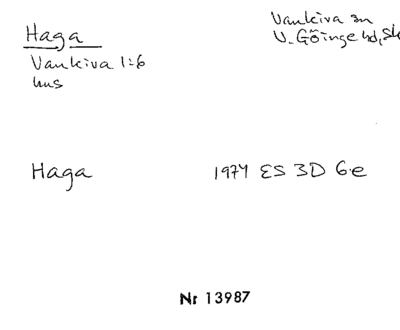 Haga
Vankiva sn
V. Göinge hd, Sk
Vankiva 1:6
hus
Haga 1974 ES 3D 6e
Nr 13987